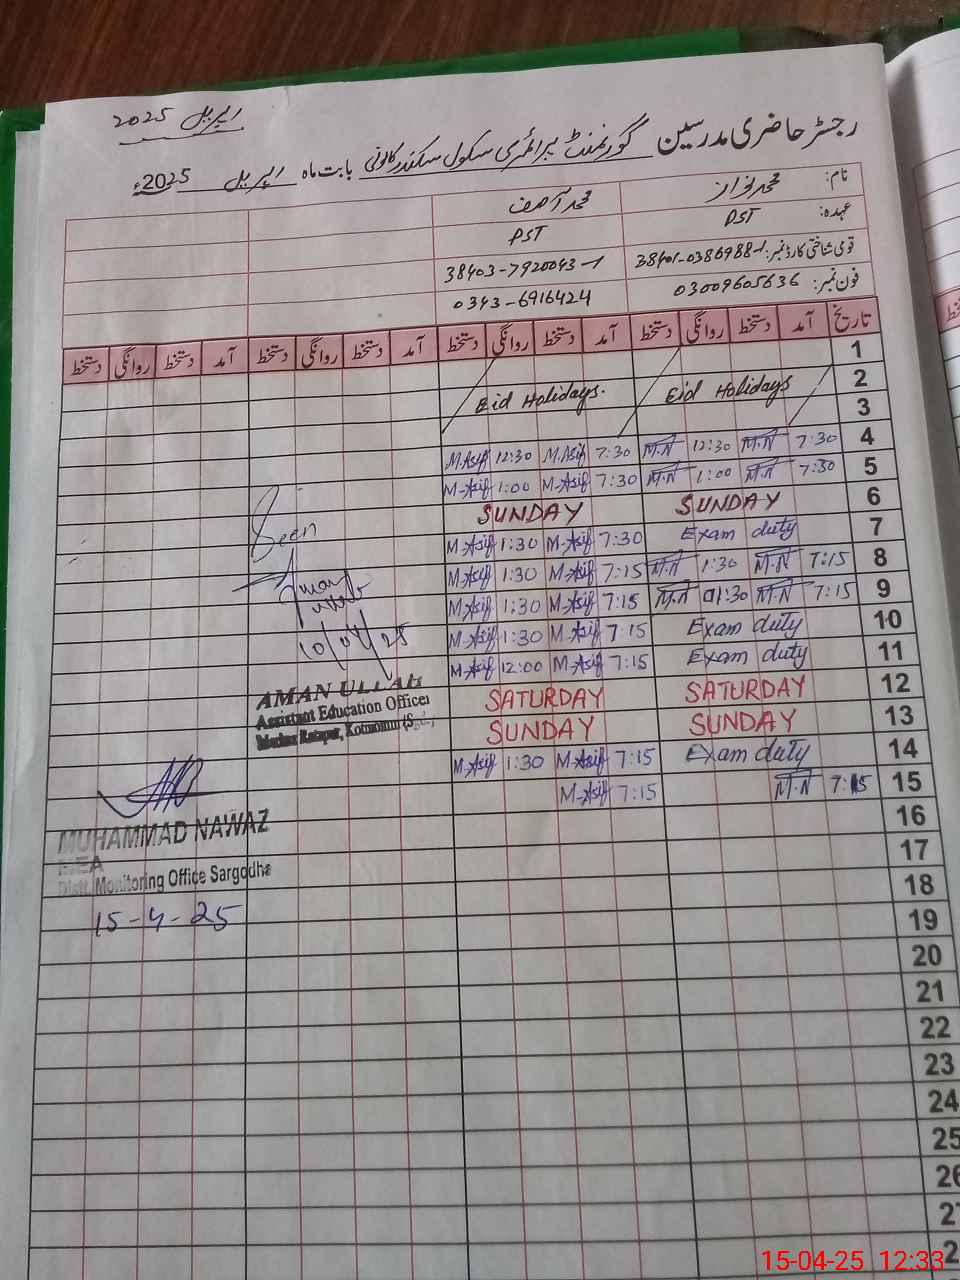 اپریل 2025
رجسٹر حاضری مدرسین گورنمنٹ پرائمری سکول سکندر کالونی بابت ماہ اپریل 2025ء
نام: محمد نواز محمد آصف
عہدہ: PST PST
قومی شناختی کارڈ نمبر: 38401-0386988-1 38403-7920043-1
فون نمبر: 03009605636 0343-6916424
تاریخ آمد دستخط روانگی دستخط آمد دستخط روانگی دستخط آمد دستخط روانگی دستخط آمد دستخط روانگی دستخط
1
Eid Holidays. Eid Holidays 2
3
M.Asif 12:30 M.Asif 7:30 M.N 12:30 M.N 7:30 4
M-Asif 1:00 M-Asif 7:30 M.N 1:00 M.N 7:30 5
SUNDAY SUNDAY 6
M-Asif 1:30 M-Asif 7:30 Exam duty 7
M-Asif 1:30 M-Asif 7:15 M.N 1:30 M.N 7:15 8
M-Asif 1:30 M-Asif 7:15 M.N 01:30 M.N 7:15 9
M-Asif 1:30 M-Asif 7:15 Exam duty 10
M-Asif 12:00 M-Asif 7:15 Exam duty 11
SATURDAY SATURDAY 12
SUNDAY SUNDAY 13
M-Asif 1:30 M-Asif 7:15 Exam duty 14
M-Asif 7:15 M.N 7:15 15
16
17
18
19
20
21
22
23
24
25
26
Seen
10/04/25
AMAN ULLAH
Assistant Education Officer
MUHAMMAD NAWAZ
MEA
Distt. Monitoring Office Sargodha
15-4-25
15-04-25 12:33